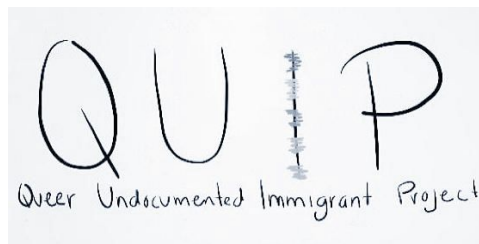 QUIP
Queer Undocumented Immigrant Project